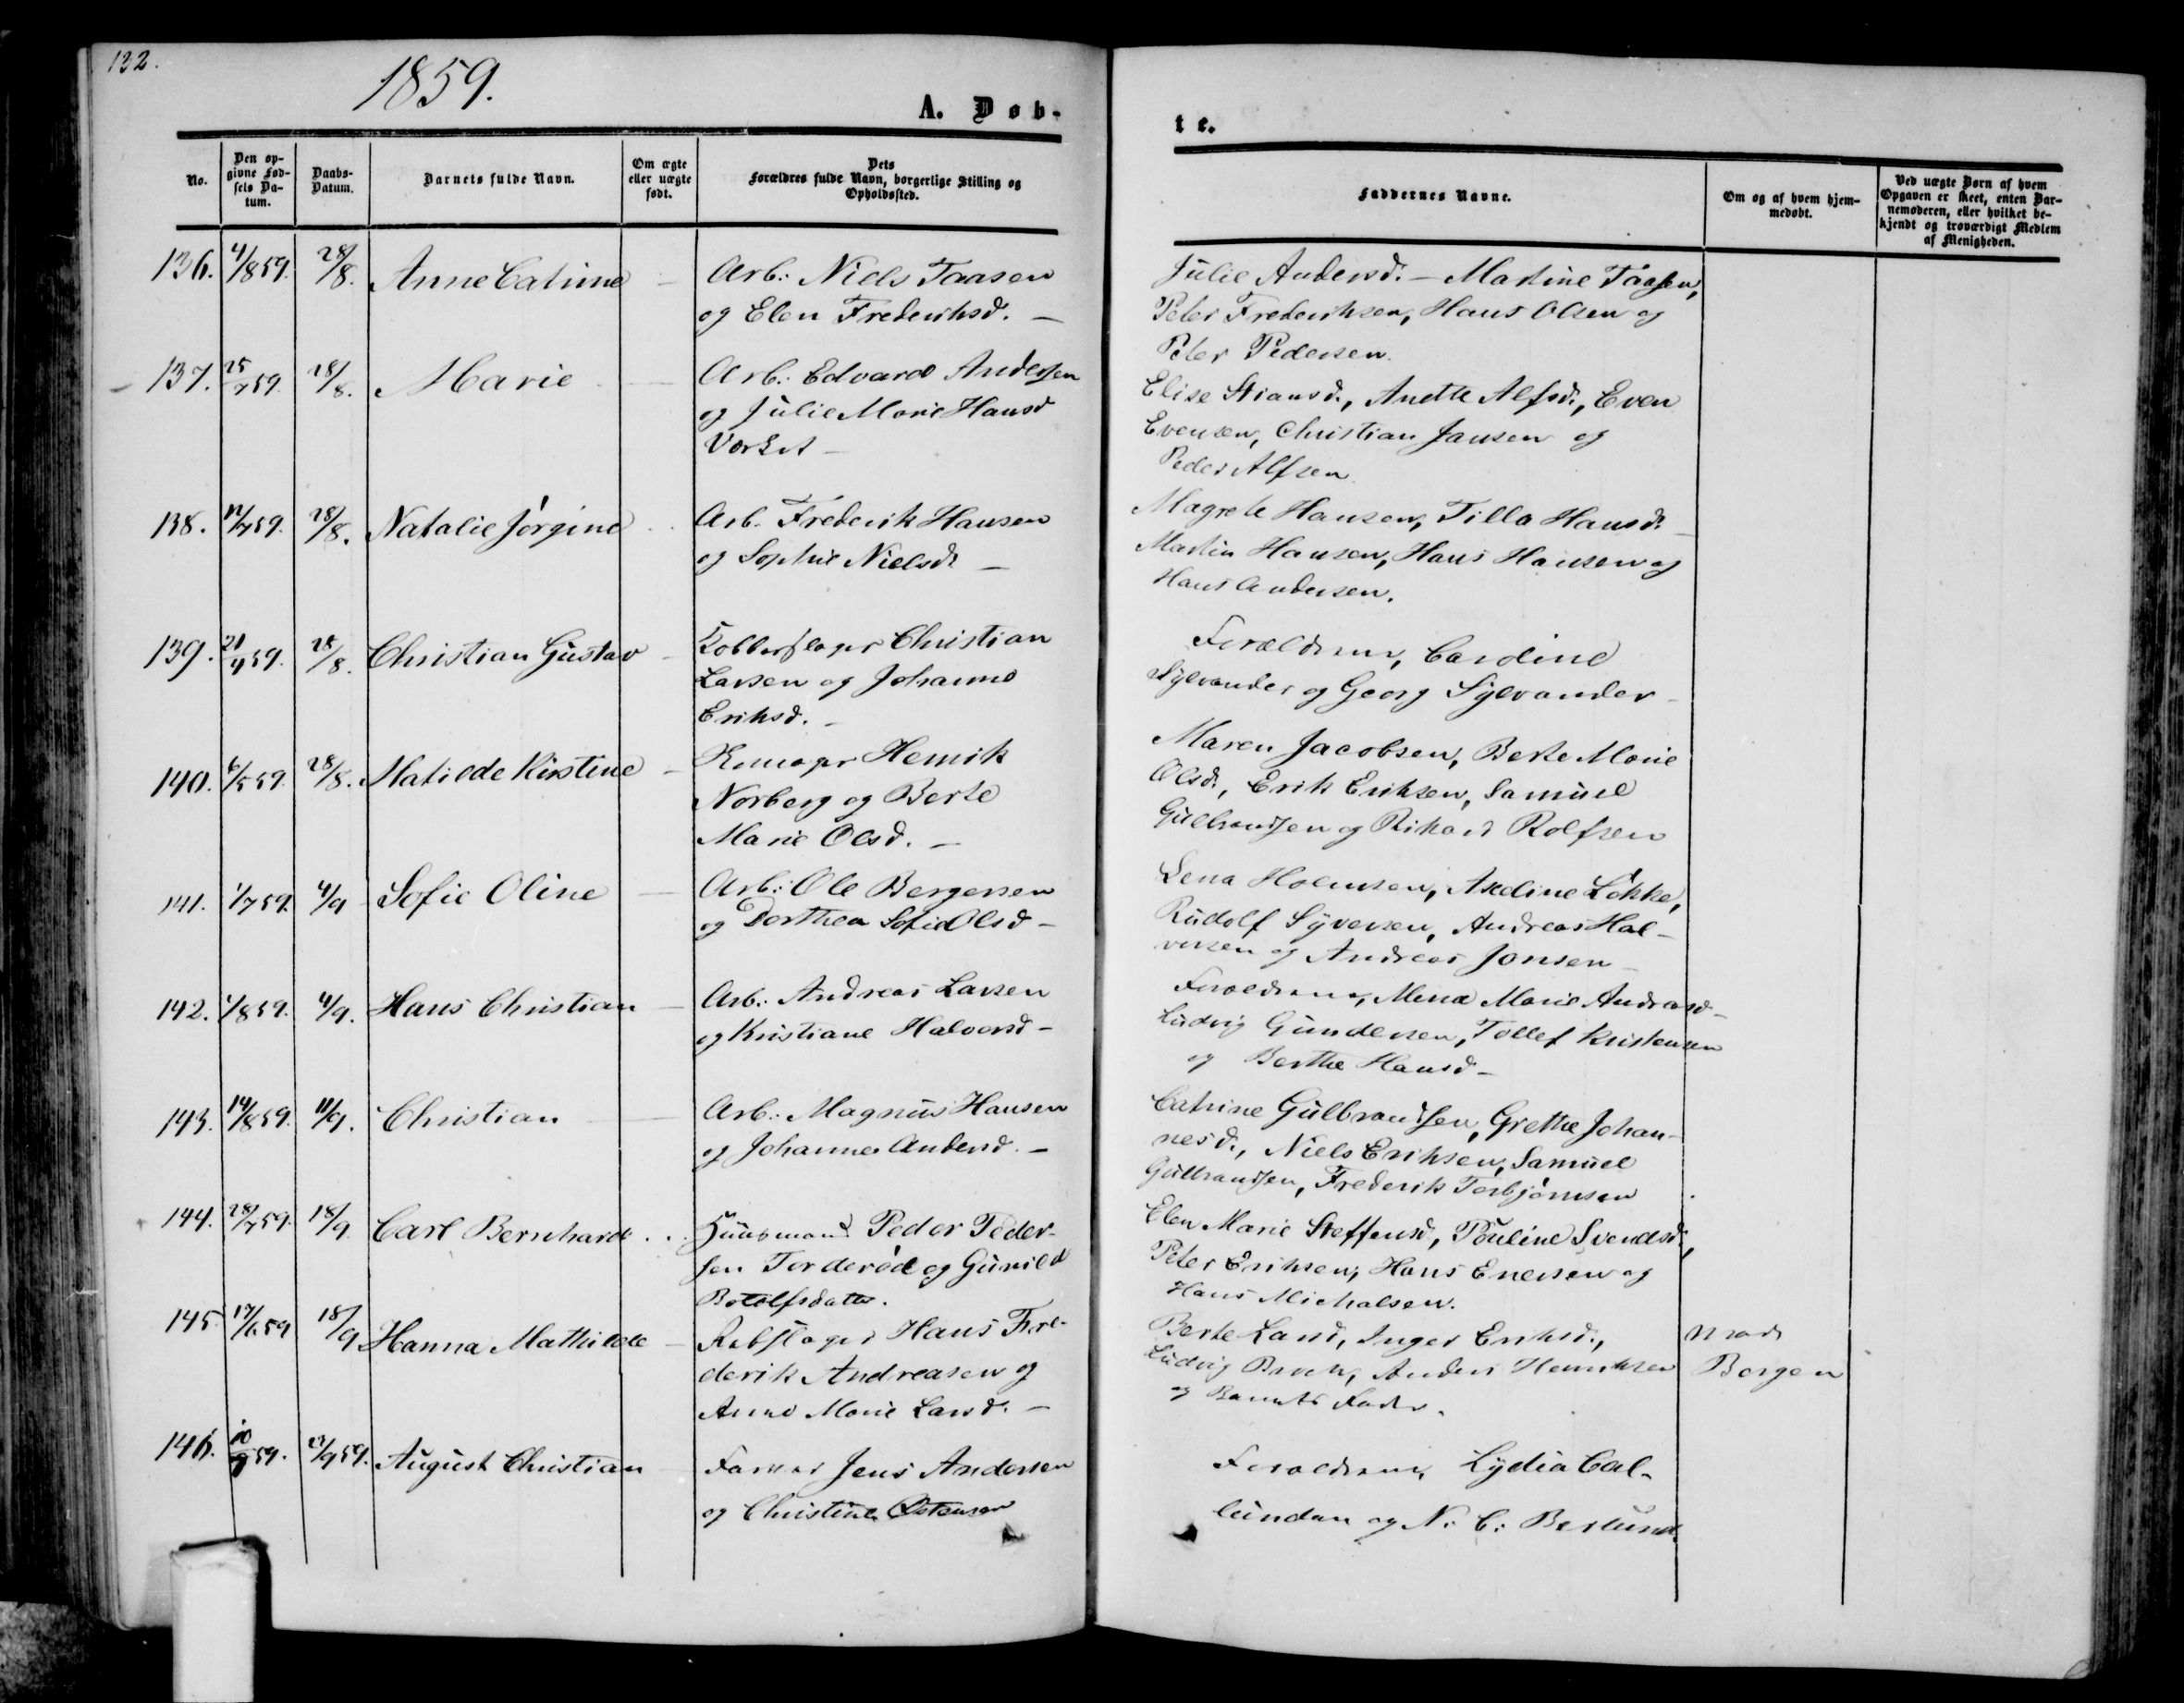 132.
1859.
A. Døb-
te.
No.
Den op-
givne Fød-
sels Da-
tum.
Daabs-
Datum.
Barnets fulde Navn.
Om ægte
eller uægte
født.
Dets
Forældres fulde Navn, borgerlige Stilling og
Opholdssted.
Faddernes Navne.
Om og af hvem hjem-
medøbt.
Ved uægte Børn af hvem
Opgaven er skeet, enten Bar-
nemoderen, eller hvilket be-
kjendt og troværdigt Medlem
af Menigheden.
136. 4/8 59. 28/8. Anne Catrine — Arb: Niels Taasen
og Elen Frederiksd. —
Julie Andersd. — Martine Taasen,
Peter Frederiksen, Hans Olsen og
Peter Pedersen.
137. 25/7 59. 28/8. Marie — Arb: Edvard Andersen
og Julie Marie Hansd
Værket —
Elise Stiansd., Anette Alfsd., Even
Evensen, Christian Jansen og
Peder Alfsen.
138. 12/7 59. 28/8. Natalie Jørgine Arb. Frederik Hansen
og Sophie Nielsd. —
Magrete Hansen, Tilla Hansd. —
Martin Hansen, Hans Hansen og
Hans Andersen.
139. 21/4 59. 28/8. Christian Gustav — Kobberslager Christian
Larsen og Johanne
Eriksd. —
Forældrene, Caroline
Sylvander og Georg Sylvander —
140. 6/5 59. 28/8. Matilde Kirstine — Henrik
Norberg og Berte
Marie Olsd. —
Maren Jacobsen, Berte Marie
Olsd., Erik Eriksen, Samuel
Gulbrandsen og Rikard Rolfsen
141. 1/7 59. 4/9 Sofie Oline — Arb: Ole Bergersen
og Dorthea Sofie Olsd —
Lena Holmsen, Axeline Løkke,
Rudolf Syversen, Andreas Hal-
vorsen og Andreas Jonsen —
142. 1/8 59. 4/9. Hans Christian — Arb: Andreas Larsen
og Kristiane Halvorsd —
Forældrene, Mina Marie Andreasd —
Ludvig Gundersen, Tollef Kristensen
og Berthe Hansd —
143. 14/8 59. 11/9. Christian — Arb: Magnus Hansen
og Johanne Andersd. —
Catrine Gulbrandsen, Grethe Johan-
nesd., Niels Eriksen, Samuel
Gulbrandsen, Frederik Torbjørnsen
144. 28/7 59. 18/9 Carl Bernhard . . Huusmand Peder Peder-
sen Torderød og Gunild
Botolfsdatter.
Elen Marie Steffensd, Pauline Svendsd.,
Peter Eriksen, Hans Enersen og
Hans Michalsen.
145. 17/6 59 18/9 Hanna Mathilde — Rebslager Hans Fre-
derik Andreasen og
Anne Marie Larsd. —
Berte Larsd, Inger Eriksd.,
Ludvig Anders Henriksen
og Barnets Fader.
Mad
Borgen
146. 10/9 59. /9 59. August Christian — Farver Jens Andersen
og Christine Østensen
Forældrene, Lydia Cal-
lundan og N. C. Berlund.